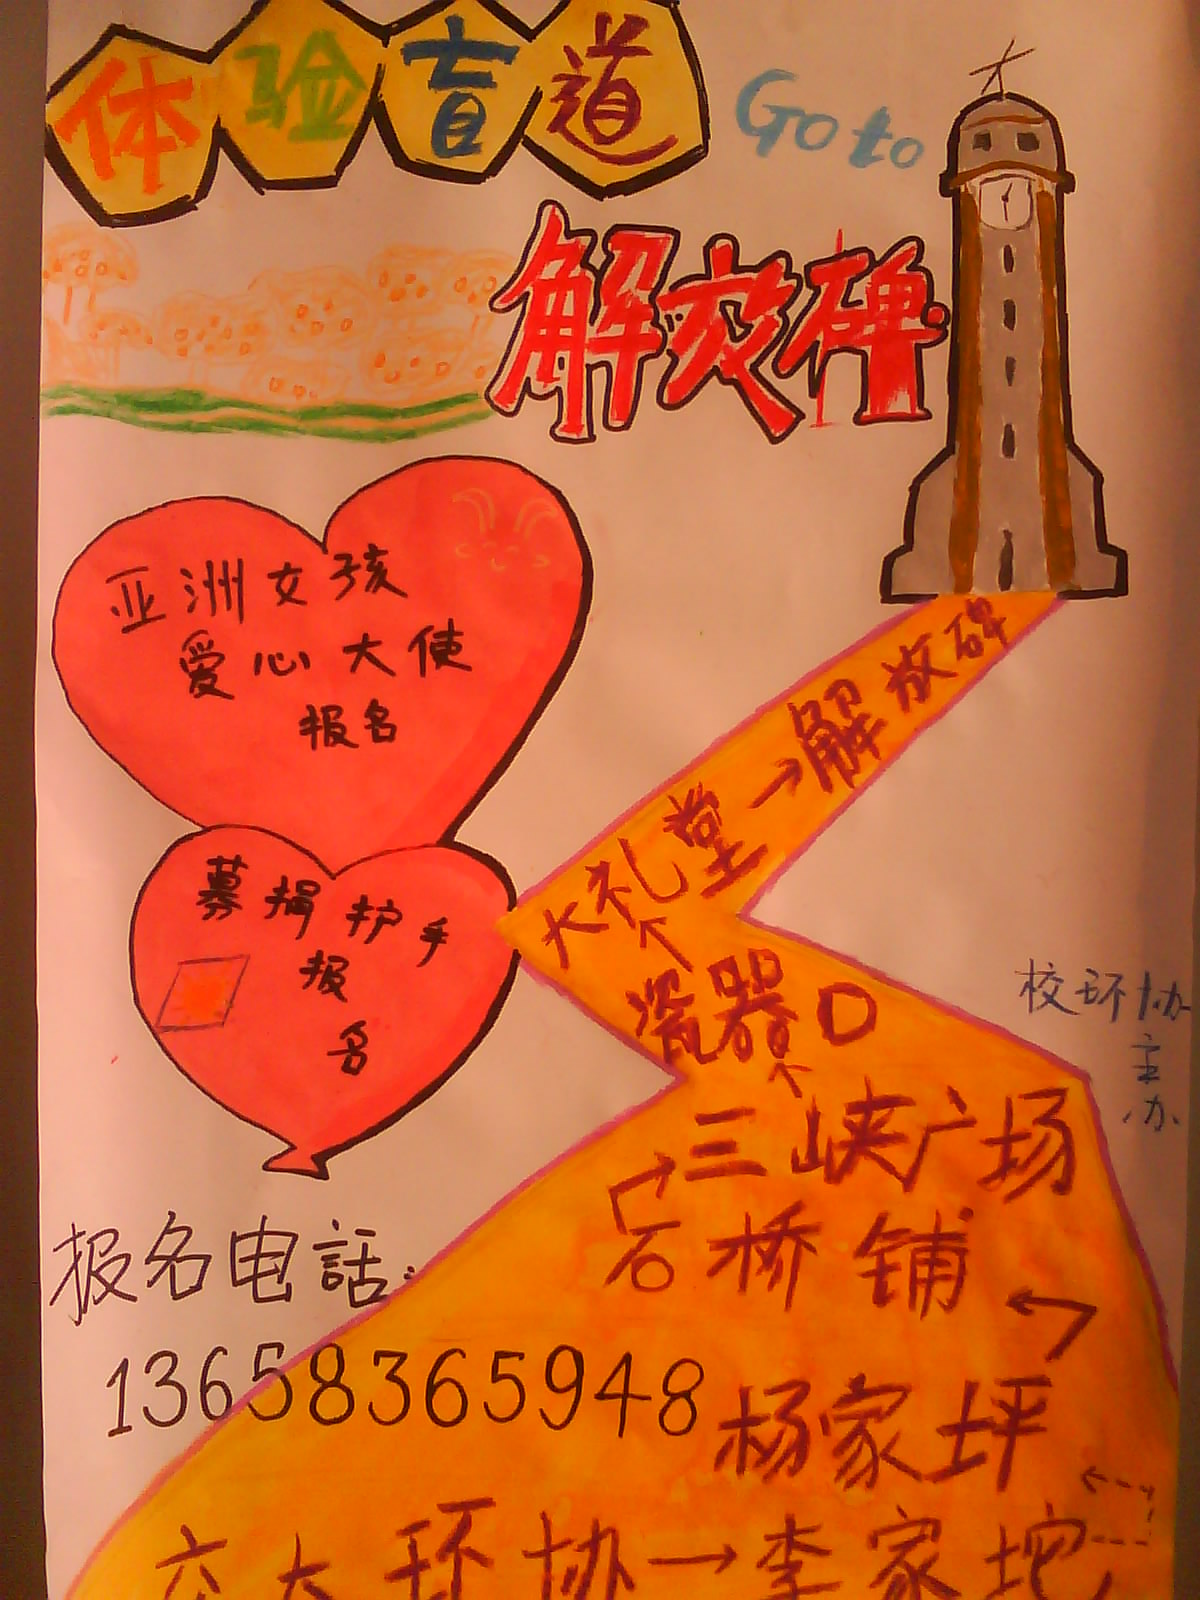 体验盲道
Go to
解放碑
亚洲女孩
爱心大使
报名
募捐护手
报
名
→解放碑
大礼堂
瓷器口
三峡广场
石桥铺
杨家坪
交大环协→李家坨
校环协
主
办
报名电話:
13658365948